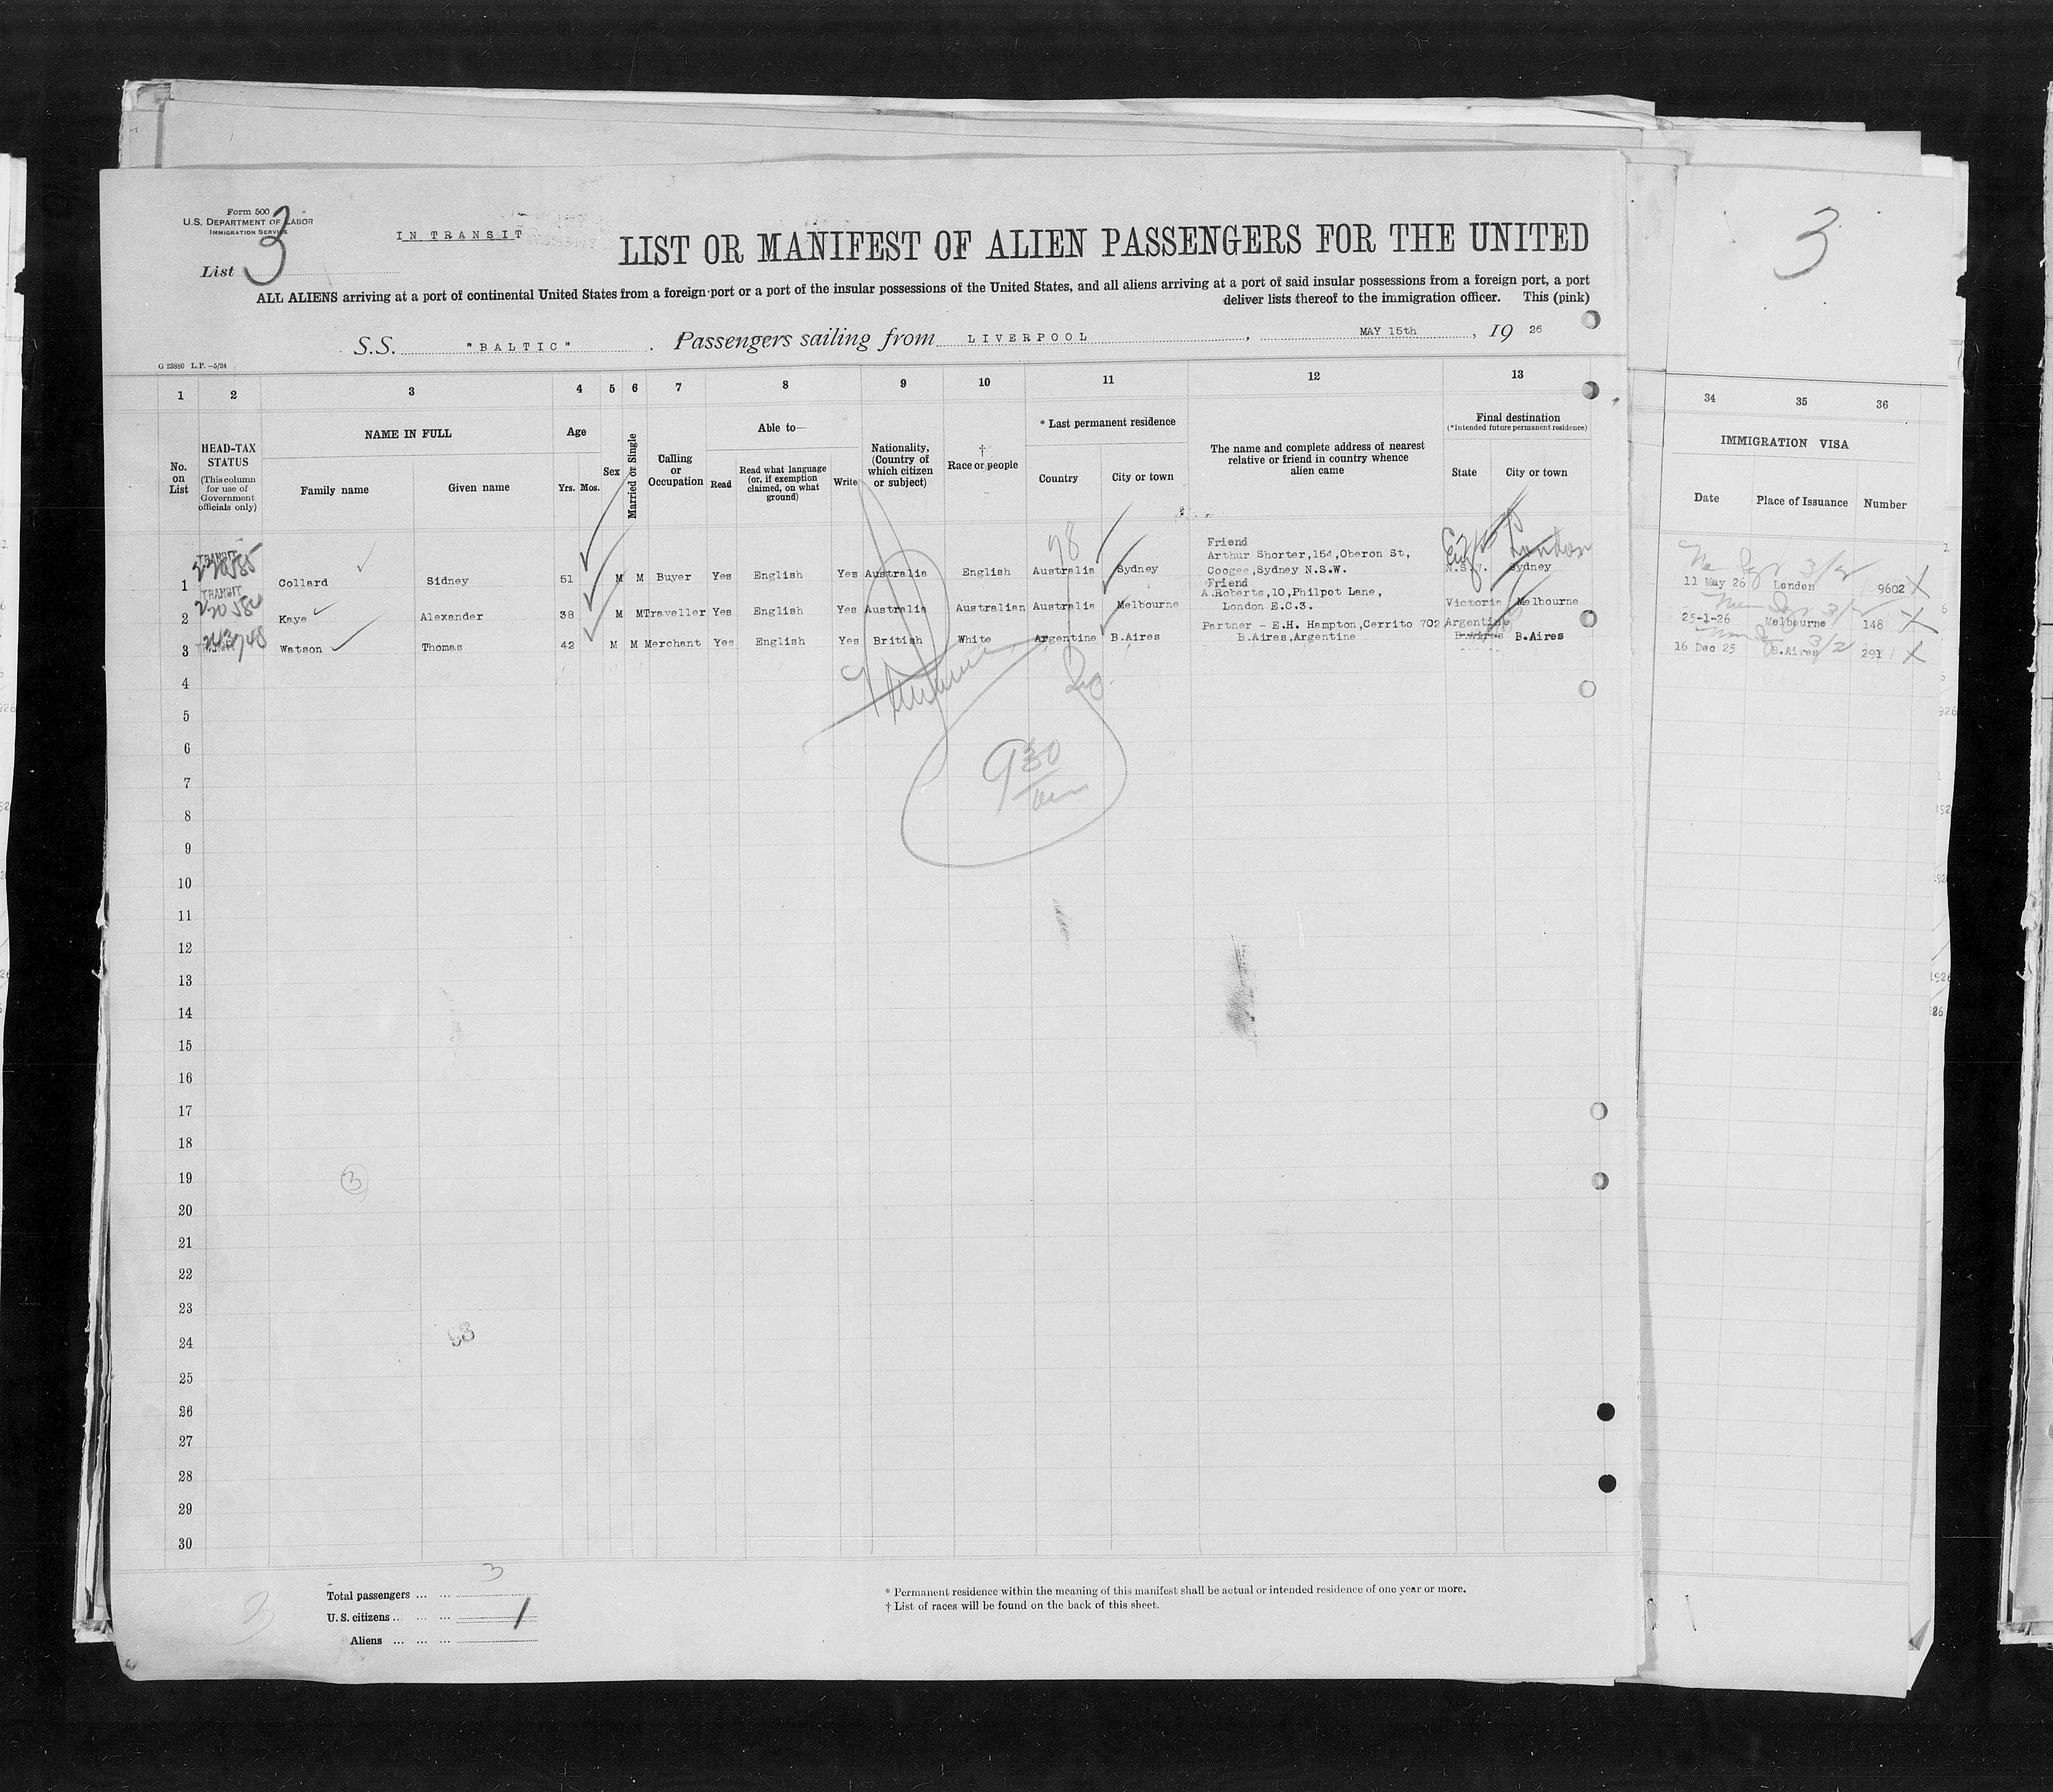 Form 500
U.S. DEPARTMENT OF LABOR
IMMIGRATION SERVICE
List 3
IN TRANSIT
LIST OR MANIFEST OF ALIEN PASSENGERS FOR THE UNITED
3
ALL ALIENS arriving at a port of continental United States from a foreign port or a port of the insular possessions of the United States, and all aliens arriving at a port of said insular possessions from a foreign port, a port
deliver lists thereof to the immigration officer. This (pink)
S.S. "BALTIC". Passengers sailing from LIVERPOOL, MAY 15th, 19 26
G 23880 L.P. —5/24
1 2 3 4 5 6 7 8 9 10 11 12 13 34 35 36
No. on List
HEAD-TAX STATUS
(This column for use of Government officials only)
NAME IN FULL
Family name Given name
Age
Yrs. Mos.
Sex
Married or Single
Calling or Occupation
Able to—
Read
Read what language (or, if exemption claimed, on what ground)
Write
Nationality, (Country of which citizen or subject)
† Race or people
* Last permanent residence
Country City or town
The name and complete address of nearest relative or friend in country whence alien came
Final destination
(*Intended future permanent residence)
State City or town
IMMIGRATION VISA
Date Place of Issuance Number
98
London
1 TRANSIT Collard Sidney 51 M M Buyer Yes English Yes Australia English Australia Sydney Friend
Arthur Shorter,154,Oberon St,
Coogee,Sydney N.S.W. N.S.W. Sydney 11 May 26 London 9602
2 TRANSIT Kaye Alexander 38 M M Traveller Yes English Yes Australia Australian Australia Melbourne Friend
A.Roberts,10,Philpot Lane,
London E.C.3. Victoria Melbourne 25-1-26 Melbourne 148
3 Watson Thomas 42 M M Merchant Yes English Yes British White Argentine B.Aires Partner - E.H. Hampton,Cerrito 702
B.Aires,Argentine Argentine B.Aires B.Aires 16 Dec 25 B.Aires 291
4
5
6
7
930
8
9
10
11
12
13
14
15
16
17
18
19
3
20
21
22
23
24
98
25
26
27
28
29
30
Total passengers ... ... 3
U. S. citizens ... ... ...
Aliens ... ... ...
3
* Permanent residence within the meaning of this manifest shall be actual or intended residence of one year or more.
† List of races will be found on the back of this sheet.